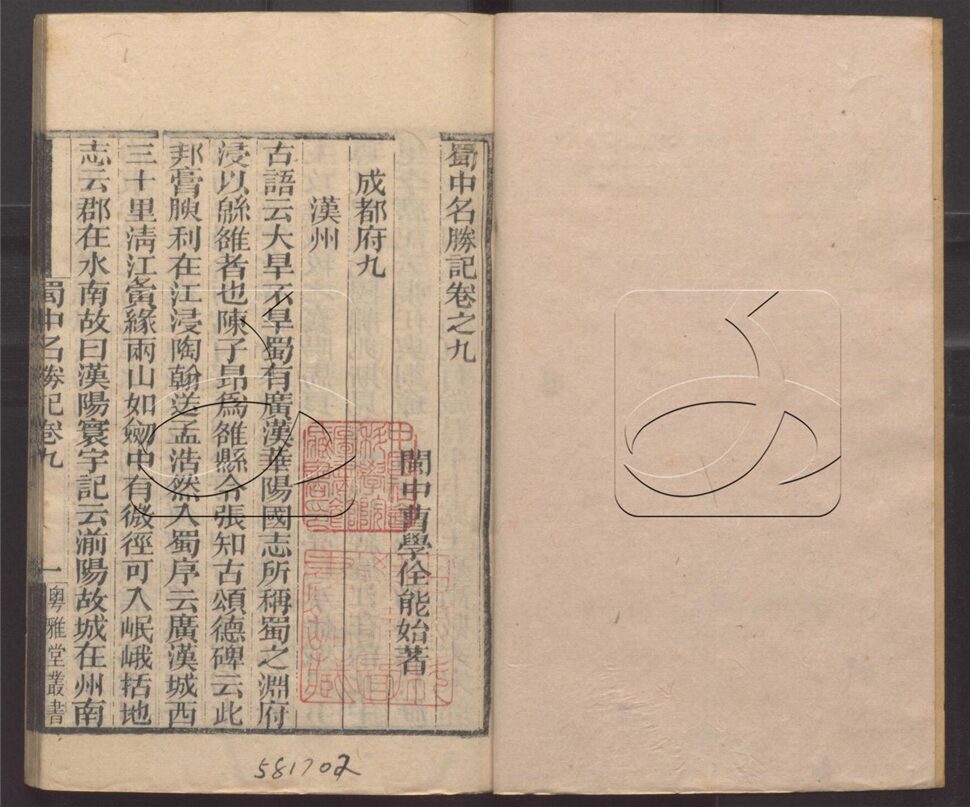 蜀中名勝記卷之九
閩中曹學佺能始著
成都府九
漢州
古語云大旱不旱蜀有廣漢華陽國志所稱蜀之淵府
浸以緜雒者也陳子昂爲雒縣令張知古頌德碑云此
邦膏腴利在江浸陶翰送孟浩然入蜀序云廣漢城西
三十里清江夤緣兩山如劒中有微徑可入岷峨括地
志云郡在水南故曰漢陽寰宇記云湔陽故城在州南
蜀中名勝記卷九
一
粵雅堂叢書
581702